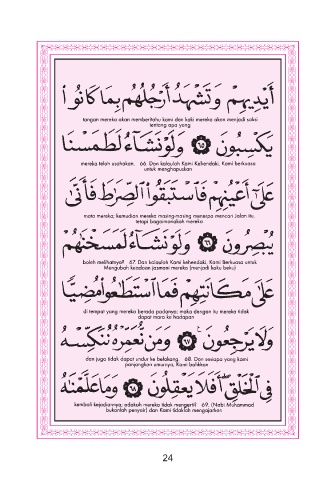 أَيْدِيهِمْ وَتَشْهَدُ أَرْجُلُهُم بِمَا كَانُوا۟
tangan mereka akan memberitahu kami dan kaki mereka akan menjadi saksi
tentang apa yang
يَكْسِبُونَ ٦٥ وَلَوْ نَشَآءُ لَطَمَسْنَا
mereka telah usahakan. 66. Dan kalaulah Kami Kehendaki, Kami berkuasa
untuk menghapuskan
عَلَىٰٓ أَعْيُنِهِمْ فَٱسْتَبَقُوا۟ ٱلصِّرَٰطَ فَأَنَّىٰ
mata mereka; kemudian mereka masing-masing menerpa mencari Jalan itu,
tetapi bagaimanakah mereka
يُبْصِرُونَ ٦٦ وَلَوْ نَشَآءُ لَمَسَخْنَٰهُمْ
boleh melihatnya? 67. Dan kalaulah Kami kehendaki, Kami Berkuasa untuk
Mengubah keadaan jasmani mereka (menjadi kaku beku)
عَلَىٰ مَكَانَتِهِمْ فَمَا ٱسْتَطَٰعُوا۟ مُضِيًّا
di tempat yang mereka berada padanya; maka dengan itu mereka tidak
dapat mara ke hadapan
وَلَا يَرْجِعُونَ ٦٧ وَمَن نُّعَمِّرْهُ نُنَكِّسْهُ
dan juga tidak dapat undur ke belakang. 68. Dan sesiapa yang kami
panjangkan umurnya, Kami balikkan
فِى ٱلْخَلْقِ أَفَلَا يَعْقِلُونَ ٦٨ وَمَا عَلَّمْنَٰهُ
kembali kejadiannya; adakah mereka tidak mengerti? 69. (Nabi Muhammad
bukanlah penyair) dan Kami tidaklah mengajarkan
24